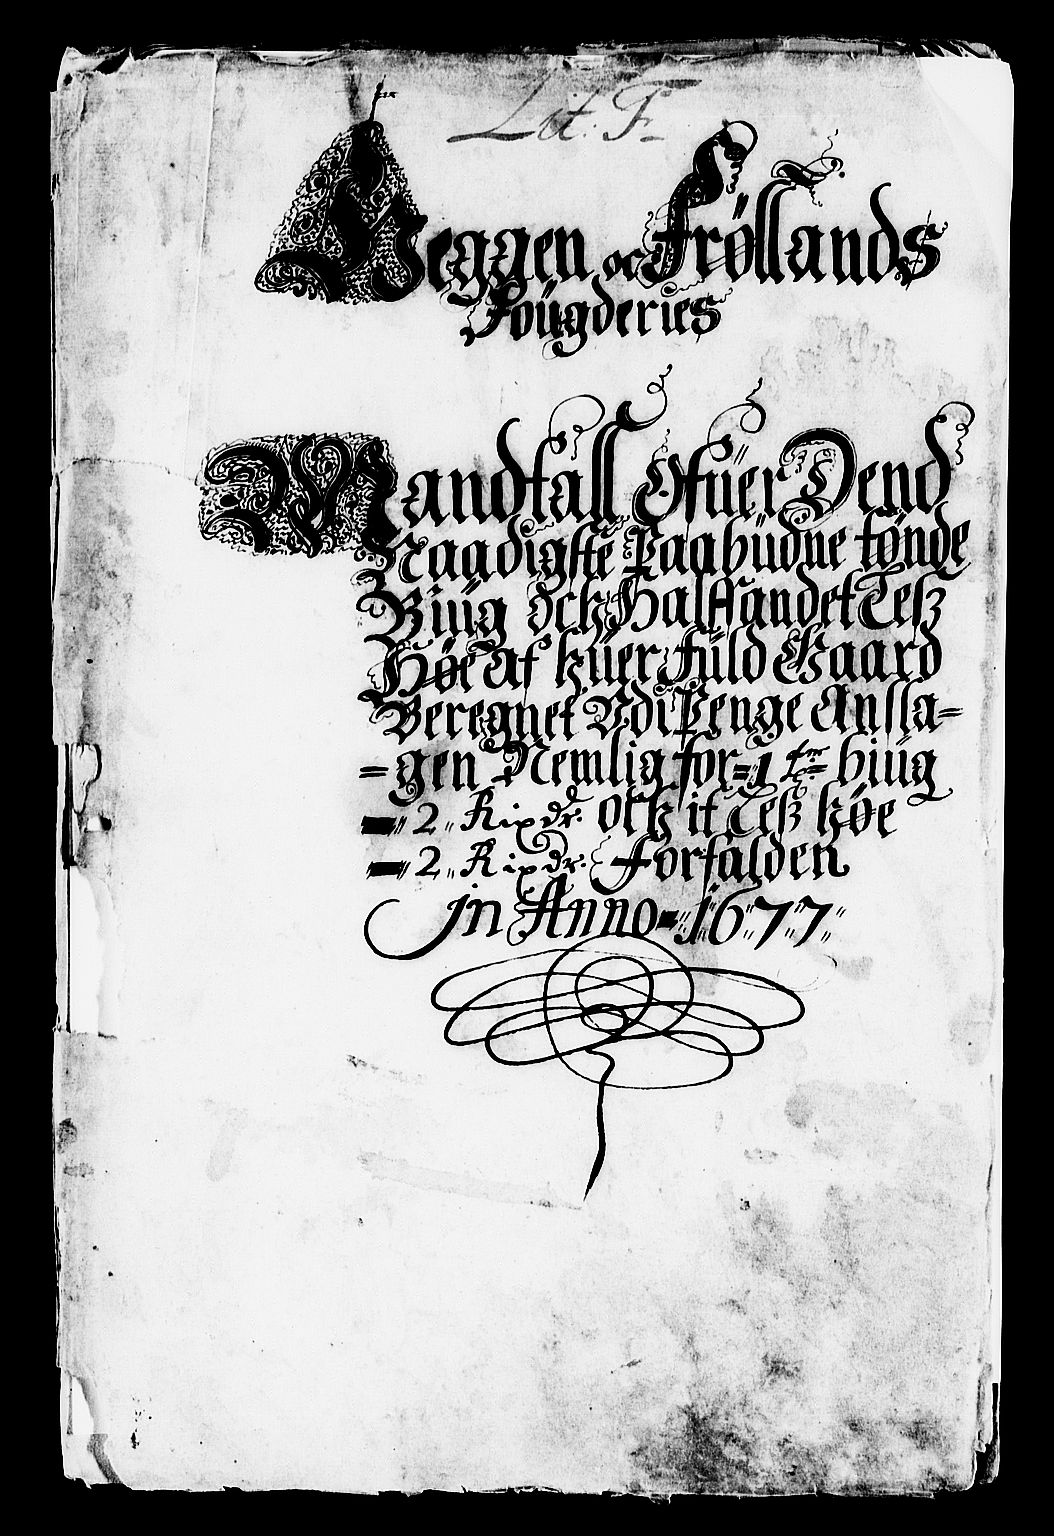 Lit. F.
Veggen oc Frøllands
Foügderies
Mandtall Ofüer Dend
Naadigste Paabüdne tønde
Biüg óck Halffandet Lesz
Høe af hüer Füld Gaard
Beregnet Vdi Penge Ansla=
=gen Nemlig for=1 tør= biüg
2 Rixdr. ock it Lesz høe
2 Rixdr. forfalden
in Anno=1677